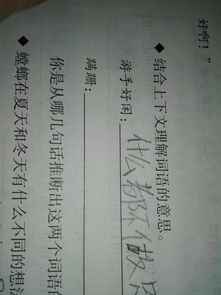 好啊！”
◆ 结合上下文理解词语的意思。
游手好闲：什么都不做
蹒跚：
你是从哪几句话推断出这两个词语的
◆ 螳螂在夏天和冬天有什么不同的想法